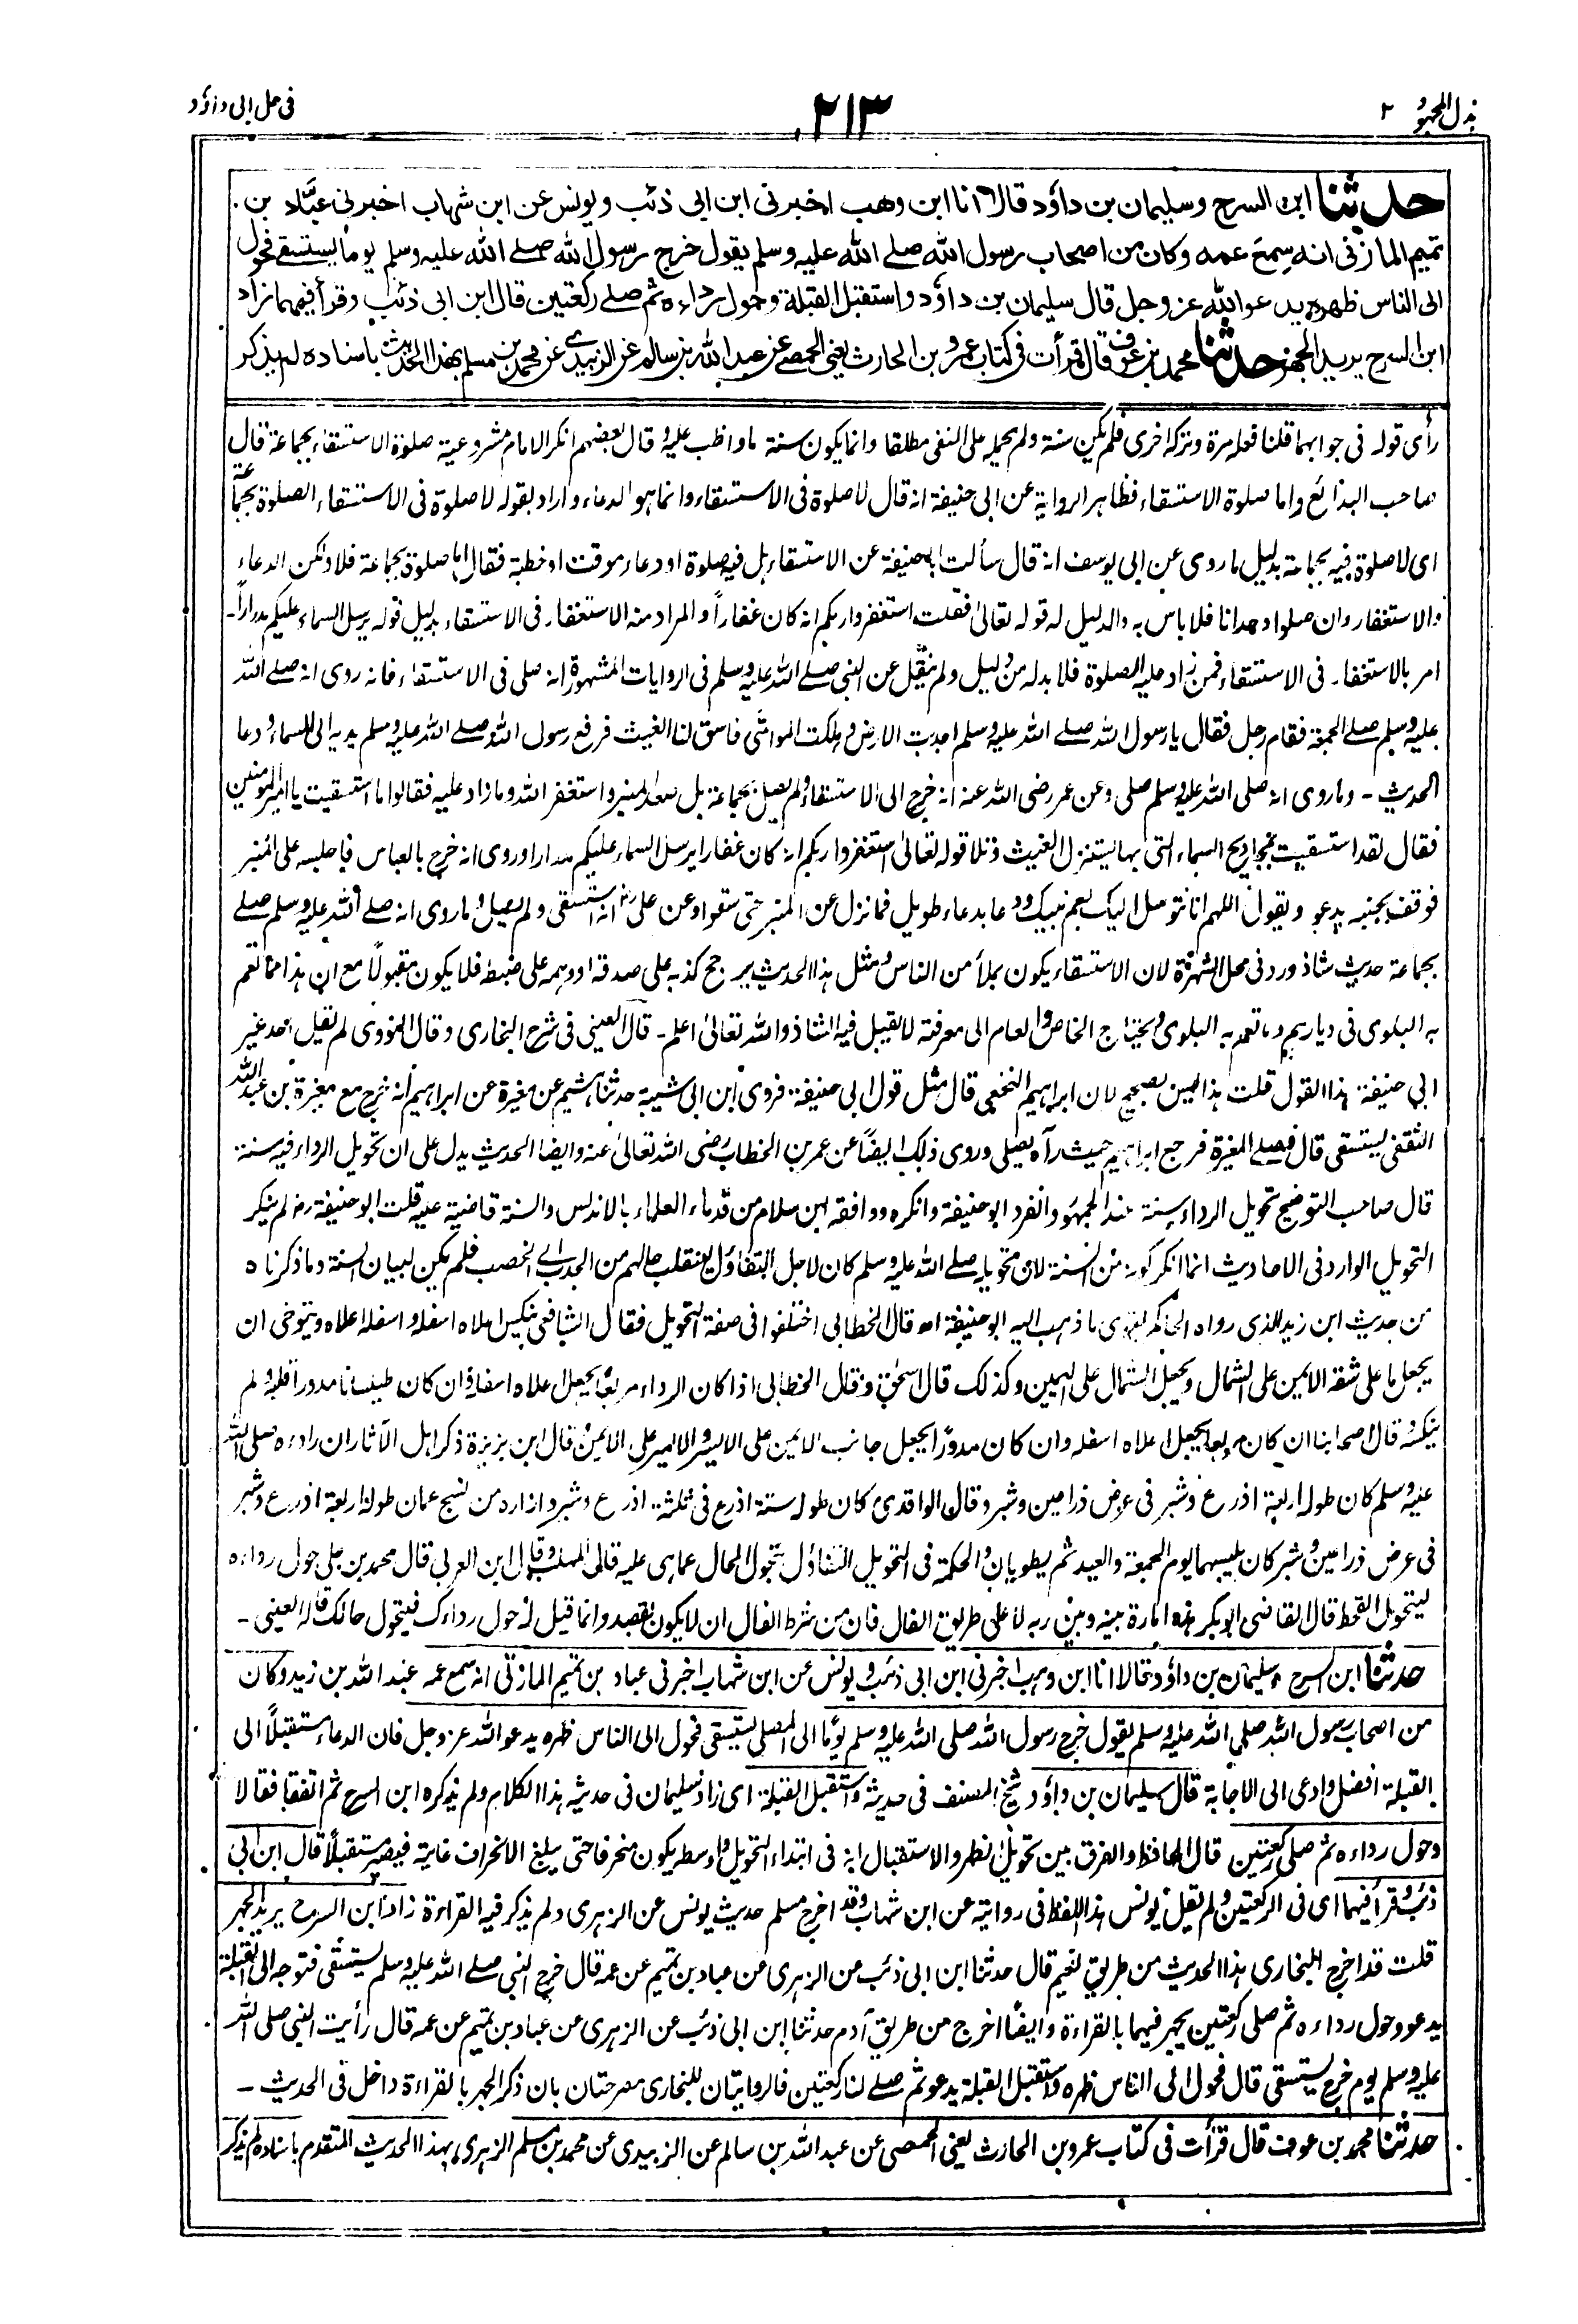 بذل المجهو ۲
۲۱۳
فی حل ابی داؤد
حدثنا ابن السرح وسلیمان بن داؤد قالا انا ابن وهب اخبرنی ابن ابی ذئب ویونس عن ابن شهاب اخبرنی عبّاد بن
تمیم المازنی انه سمع عمه وکان من اصحاب رسول الله صلے الله علیه وسلم یقول خرج رسول الله صلے الله علیه وسلم یوما یستسقے فحول
الی الناس ظهره یدعو الله عز وجل قال سلیمان بن داؤد واستقبل القبلة وحول رداءه ثم صلے رکعتین قال ابن ابی ذئب وقرأ فیهما زاد
ابن السرح یرید الجهر حدثنا محمد بن عوف قال قرأت فی کتاب عمرو بن الحارث یعنی الحمصے عن عبد الله بن سالم عن الزبیدے عن محمد بن مسلم بهذا الحدیث باسناده لم یذکر
رأی قوله فی جوابهما قلنا فعله مرة وترکه اخری فلم یکن سنة ولم یحمله علی النفی مطلقا وانما یکون سنة ما واظب علیه وقال بعضهم انکر الامام مشروعیة صلوة الاستسقاء بجماعة قال
صاحب البدائع واما صلوة الاستسقاء فظاهر الروایة عن ابی حنیفة انه قال لا صلوة فی الاستسقاء وانما هو الدعاء واراد بقوله لا صلوة فی الاستسقاء الصلوة بجماعة
ای لا صلوة فیه بجماعة بدلیل ما روی عن ابی یوسف انه قال سألت ابا حنیفة عن الاستسقاء هل فیه صلوة او دعاء موقت او خطبة فقال اما صلوة بجماعة فلا ولکن الدعاء
والاستغفار وان صلوا وحدانا فلا باس به والدلیل له قوله تعالیٰ فقلت استغفروا ربکم انه کان غفاراً والمراد منه الاستغفار فی الاستسقاء بدلیل قوله یرسل السماء علیکم مدراراً۔
امر بالاستغفار فی الاستسقاء فمن زاد علیه الصلوة فلا بد له من دلیل ولم ینقل عن النبی صلے الله علیه وسلم فی الروایات المشهورة انه صلی فی الاستسقاء فانه روی انه صلے الله
علیه وسلم صلے الجمعة فقام رجل فقال یا رسول الله صلے الله علیه وسلم اجدبت الارض وهلکت المواشی فاسق لنا الغیث فرفع رسول الله صلے الله علیه وسلم یدیه الی السماء ودعا
الحدیث۔ وما روی انه صلی الله علیه وسلم صلی وعن عمر رضی الله عنه انه خرج الی الاستسقاء ولم یصل بجماعة بل صعد المنبر واستغفر الله وما زاد علیه فقالوا ما استسقیت یا امیر المومنین
فقال لقد استسقیت بمجادیح السماء التی بها یستنزل الغیث وتلا قوله تعالیٰ استغفروا ربکم انه کان غفارا یرسل السماء علیکم مدرارا وروی انه خرج بالعباس فاجلسه علی المنبر
فوقف بجنبه یدعو ویقول اللهم انا نتوسل الیک بعم نبیک ودعا بدعاء طویل فما نزل عن المنبر حتی سقوا وعن علی رض انه استسقی ولم یصل وما روی انه صلے الله علیه وسلم صلے
بجماعة حدیث شاذ ورد فی محل الشهرة لان الاستسقاء یکون بملأ من الناس ومثل هذا الحدیث یرجح کذبه علی صدقه او وهمه علی ضبطه فلا یکون مقبولاً مع ان هذا مما تعم
به البلوی فی دیارهم وما تعم به البلوی ویحتاج الخاص والعام الی معرفته لا یقبل فیه الشاذ والله تعالیٰ اعلم۔ قال العینی فی شرح البخاری وقال النووی لم یقل احد غیر
ابی حنیفة هذا القول قلت هذا لیس بصحیح لان ابراهیم النخعی قال مثل قول ابی حنیفة فروی ابن ابی شیبة حدثنا هشیم عن مغیرة عن ابراهیم انه خرج مع مغیرة بن عبد الله
الثقفی یستسقی قال فصلے المغیرة فرجع ابراهیم حیث رآه یصلی وروی ذلک ایضاً عن عمر بن الخطاب رضی الله تعالیٰ عنه وایضا الحدیث یدل علی ان تحویل الرداء فیه سنة
قال صاحب التوضیح تحویل الرداء سنة عند الجمهور وانفرد ابو حنیفة وانکره ووافقه ابن سلام من قدماء العلماء بالاندلس والسنة قاضیة علیه قلت ابو حنیفة رح لم ینکر
التحویل الوارد فی الاحادیث انما انکر کونه من السنة لان تحویله صلے الله علیه وسلم کان لاجل التفاؤل لینقلب حالهم من الجدب الے الخصب فلم یکن لبیان السنة وما ذکرناه
من حدیث ابن زید الذی رواه الحاکم یقوی ما ذهب الیه ابو حنیفة اھ قال الخطابی اختلفوا فی صفة التحویل فقال الشافعی ینکس اعلاه اسفله واسفله اعلاه ویتوخی ان
یجعل ما علی شقه الایمن علی الشمال ویجعل الشمال علی الیمین وکذلک قال اسحق وقال الخطابی اذا کان الرداء مربعاً یجعل اعلاه اسفله وان کان طیلسانا مدوراً قلبه ولم
ینکسه قال اصحابنا ان کان مربعا یجعل اعلاه اسفله وان کان مدوّرا یجعل جانب الایمن علی الایسر والایسر علی الایمن وقال ابن بزیزة ذکر اهل الآثار ان رداءه صلی الله
علیه وسلم کان طوله اربعة اذرع وشبر فی عرض ذراعین وشبر وقال الواقدی کان طوله ستة اذرع فی ثلثة اذرع وشبر وازاره من نسج عمان طوله اربعة اذرع وشبر
فی عرض ذراعین وشبر کان یلبسهما یوم الجمعة والعید ثم یطویان والحکمة فی التحویل التفاؤل بتحول الحال عما هی علیه قاله المهلب وقال ابن العربی قال محمد بن علی حول رداءه
لیتحول القحط قال القاضی ابو بکر هذه امارة بینه وبین ربه لا علی طریق الفال فان من شرط الفال ان لا یکون بقصد وانما قیل له حول رداءک فیتحول حالک قاله العینی۔
حدثنا ابن السرح وسلیمان بن داؤد قالا انا ابن وهب اخبرنی ابن ابی ذئب ویونس عن ابن شهاب اخبرنی عباد بن تمیم المازنی انه سمع عمه عبد الله بن زید وکان
من اصحاب رسول الله صلی الله علیه وسلم یقول خرج رسول الله صلی الله علیه وسلم یوماً الی المصلی یستسقی فحول الی الناس ظهره یدعو الله عز وجل فان الدعاء مستقبلاً الی
القبلة افضل وادعی الی الاجابة قال سلیمان بن داؤد شیخ المصنف فی حدیثه واستقبل القبلة ای زاد سلیمان فی حدیثه هذا الکلام ولم یذکره ابن السرح ثم اتفقا فقالا
وحول رداءه ثم صلی رکعتین قال الحافظ والفرق بین تحویل الظهر والاستقبال انه فی ابتداء التحویل واوسطه یکون منحرفا حتی یبلغ الانحراف غایته فیصیر مستقبلاً قال ابن ابی
ذئب وقرأ فیهما ای فی الرکعتین ولم یقل یونس هذا اللفظ فی روایته عن ابن شهاب وقد اخرج مسلم حدیث یونس عن الزهری ولم یذکر فیه القراءة زاد ابن السرح یرید الجهر
قلت قد اخرج البخاری هذا الحدیث من طریق نعیم قال حدثنا ابن ابی ذئب عن الزهری عن عباد بن تمیم عن عمه قال خرج النبی صلے الله علیه وسلم یستسقی فتوجه الی القبلة
یدعو وحول رداءه ثم صلی رکعتین یجهر فیهما بالقراءة وایضاً اخرج من طریق آدم حدثنا ابن ابی ذئب عن الزهری عن عباد بن تمیم عن عمه قال رأیت النبی صلی الله
علیه وسلم یوم خرج یستسقی قال فحول الی الناس ظهره واستقبل القبلة یدعو ثم صلے لنا رکعتین فالروایتان للبخاری مصرحتان بان ذکر الجهر بالقراءة داخل فی الحدیث۔
حدثنا محمد بن عوف قال قرأت فی کتاب عمرو بن الحارث یعنی الحمصی عن عبد الله بن سالم عن الزبیدی عن محمد بن مسلم الزهری بهذا الحدیث المتقدم باسناده لم یذکر